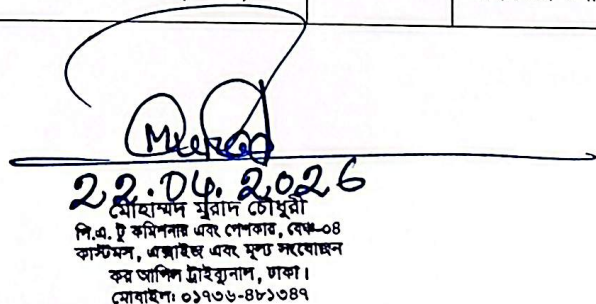 Murad
22.04.2026
মোহাম্মদ মুরাদ চৌধুরী
পি.এ. টু কমিশনার এবং পেশকার, বেঞ্চ-০৪
কাস্টমস, এক্সাইজ এবং মূল্য সংযোজন
কর আপিল ট্রাইব্যুনাল, ঢাকা।
মোবাইল: ০১৭৩৬-৪৮১৩৪৭